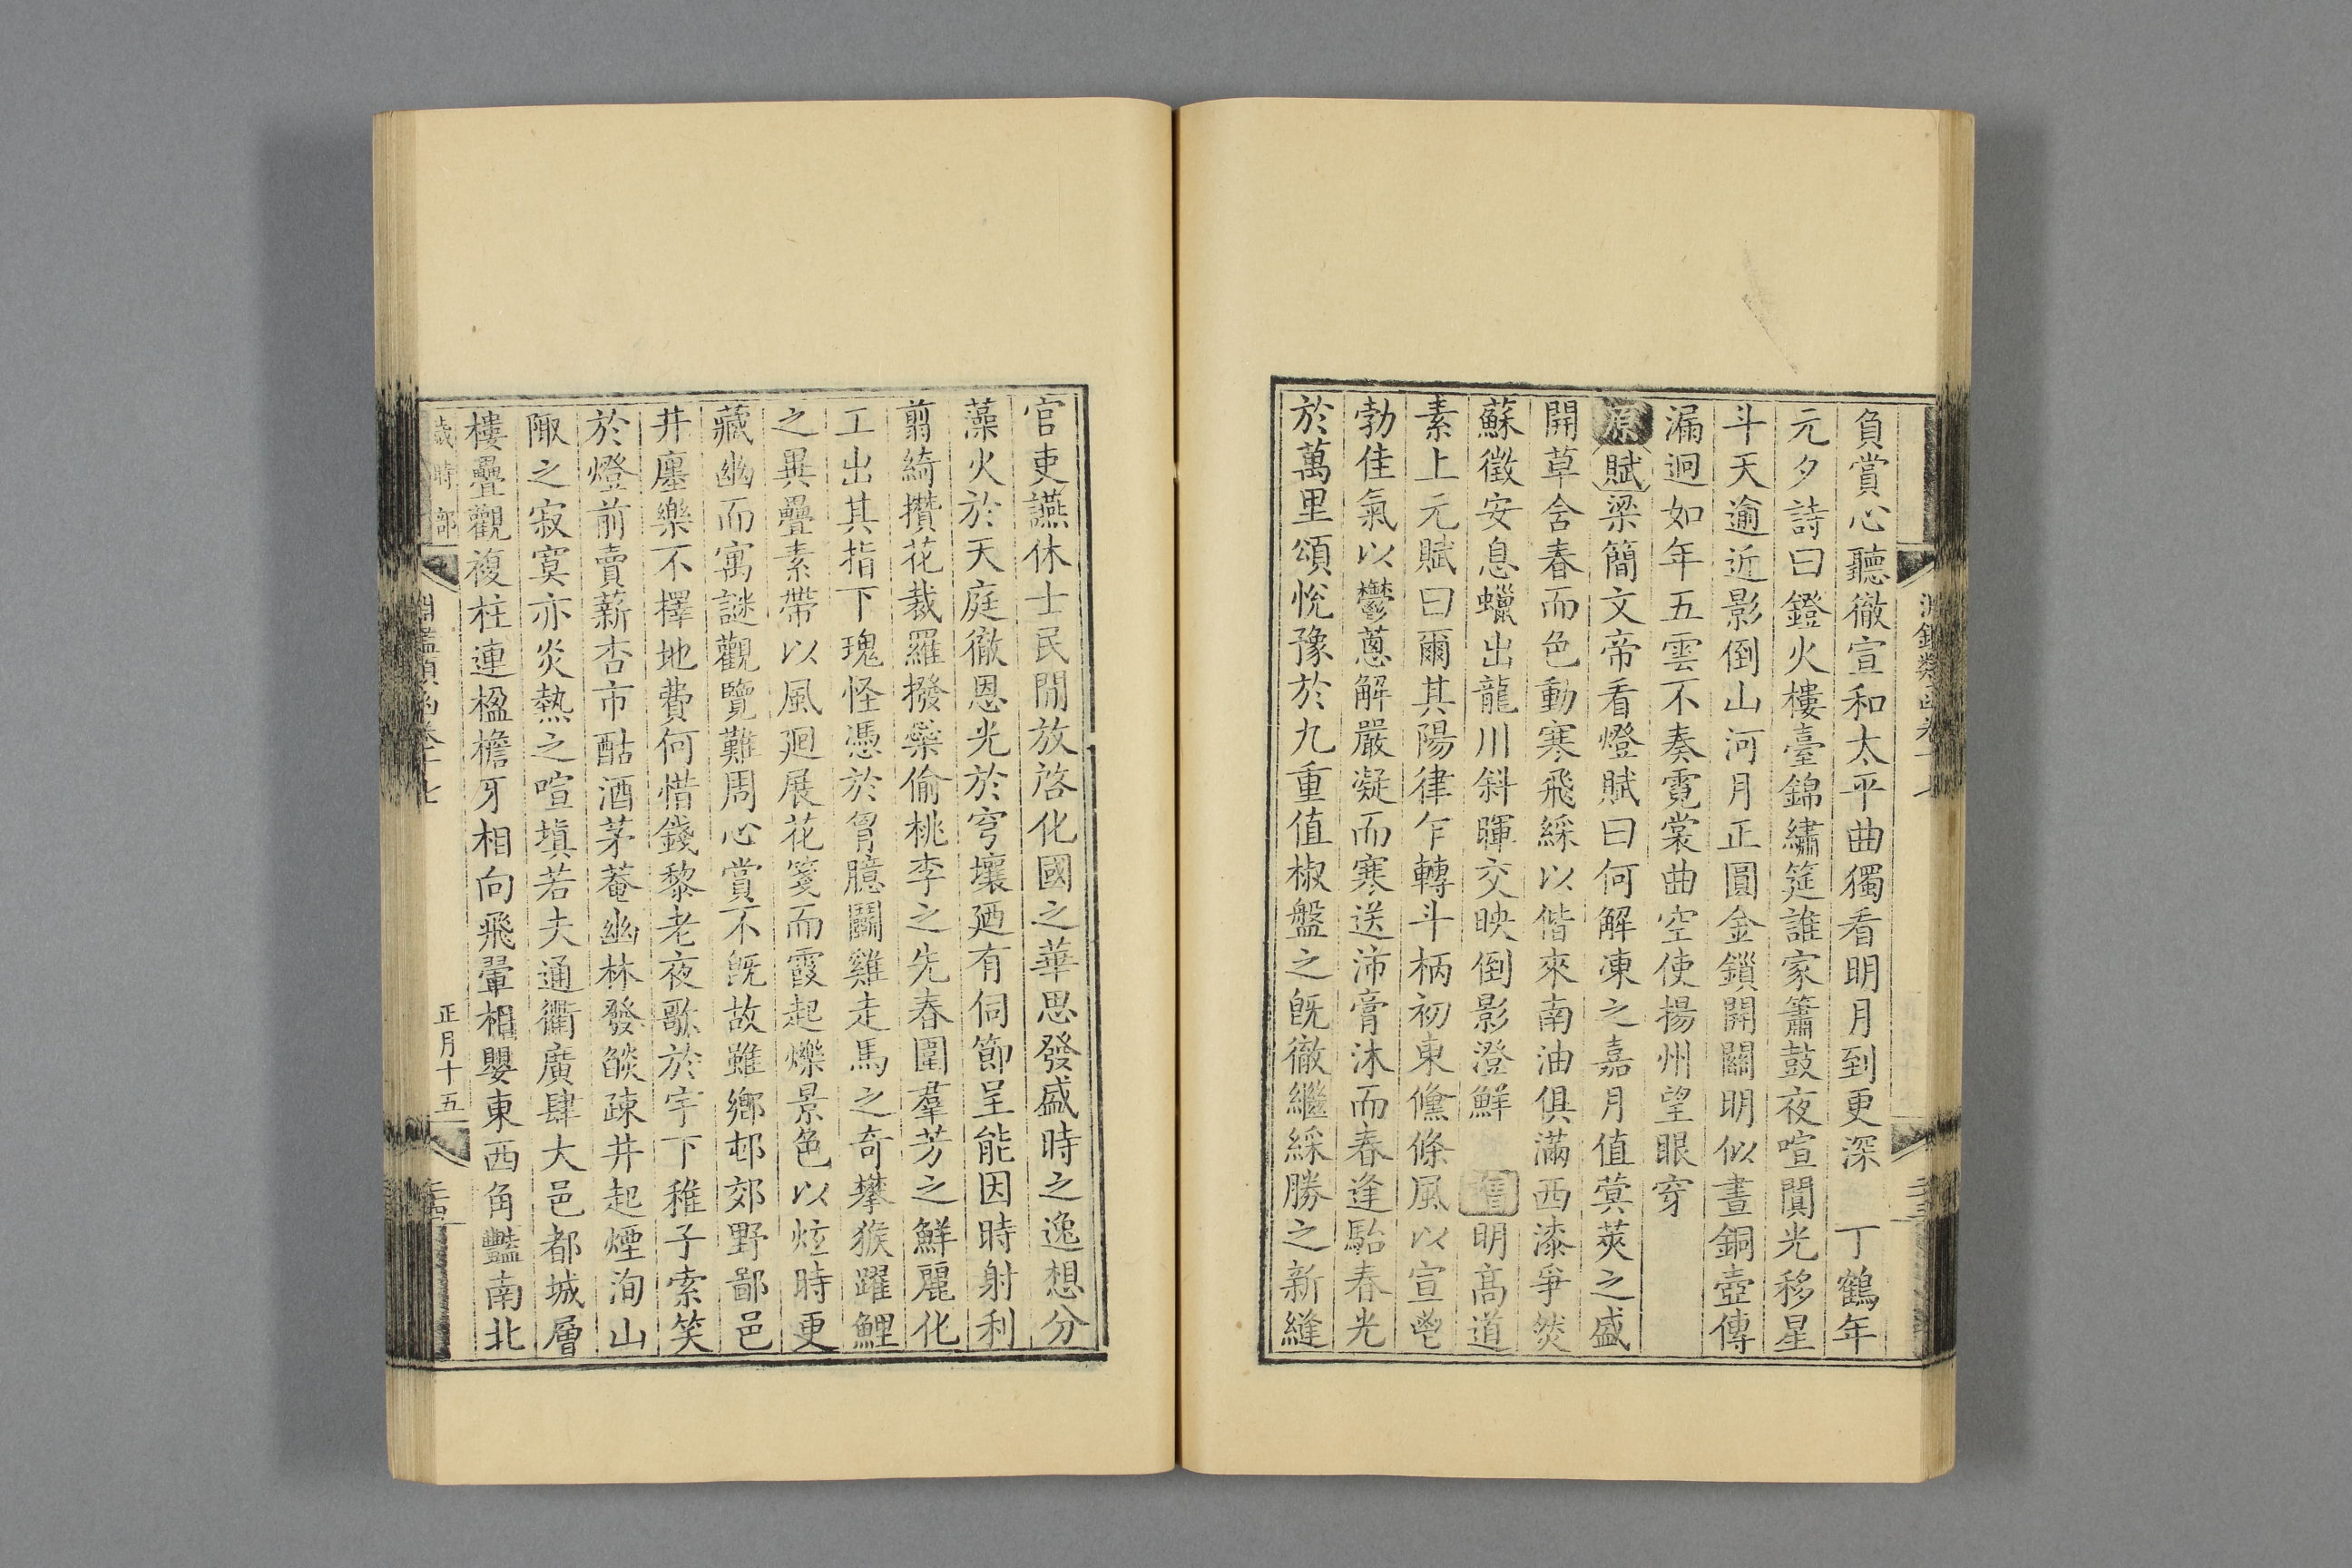 負賞心聽徹宣和太平曲獨看明月到更深 丁鶴年
元夕詩曰鐙火樓臺錦繡筵誰家簫鼓夜喧闐光移星
斗天逾近影倒山河月正圓金鎖開關明似晝銅壺傳
漏迥如年五雲不奏霓裳曲空使揚州望眼穿
原賦梁簡文帝看燈賦曰何解凍之嘉月值蓂莢之盛
開草含春而色動寒飛綵以偕來南油俱滿西漆爭燃
蘇徵安息蠟出龍川斜暉交映倒影澄鮮 增明高道
素上元賦曰爾其陽律乍轉斗柄初東儵條風以宣鬯
勃佳氣以鬱蔥解嚴凝而寒送沛膏沐而春逢駘春光
於萬里頌悅豫於九重值椒盤之旣徹繼綵勝之新縫
官吏讌休士民閒放啓化國之華思發盛時之逸想分
藻火於天庭徹恩光於穹壤廼有伺節呈能因時射利
翦綺攢花裁羅撥蘂偷桃李之先春圍羣芳之鮮麗化
工出其指下瑰怪憑於胷臆鬬雞走馬之奇攀猴躍鯉
之異疊素帶以風廻展花箋而霞起爍景色以炫時更
藏幽而寓謎觀覽難周心賞不旣故雖鄉邨郊野鄙邑
井廛樂不擇地費何惜錢黎老夜歌於宇下稚子索笑
於燈前賣薪杏市酤酒茅菴幽林發燄疎井起煙洵山
陬之寂寞亦炎熱之喧塡若夫通衢廣肆大邑都城層
樓疊觀複柱連楹檐牙相向飛翬相嬰東西角豔南北
歲時部 淵鑑類函卷十七 正月十五